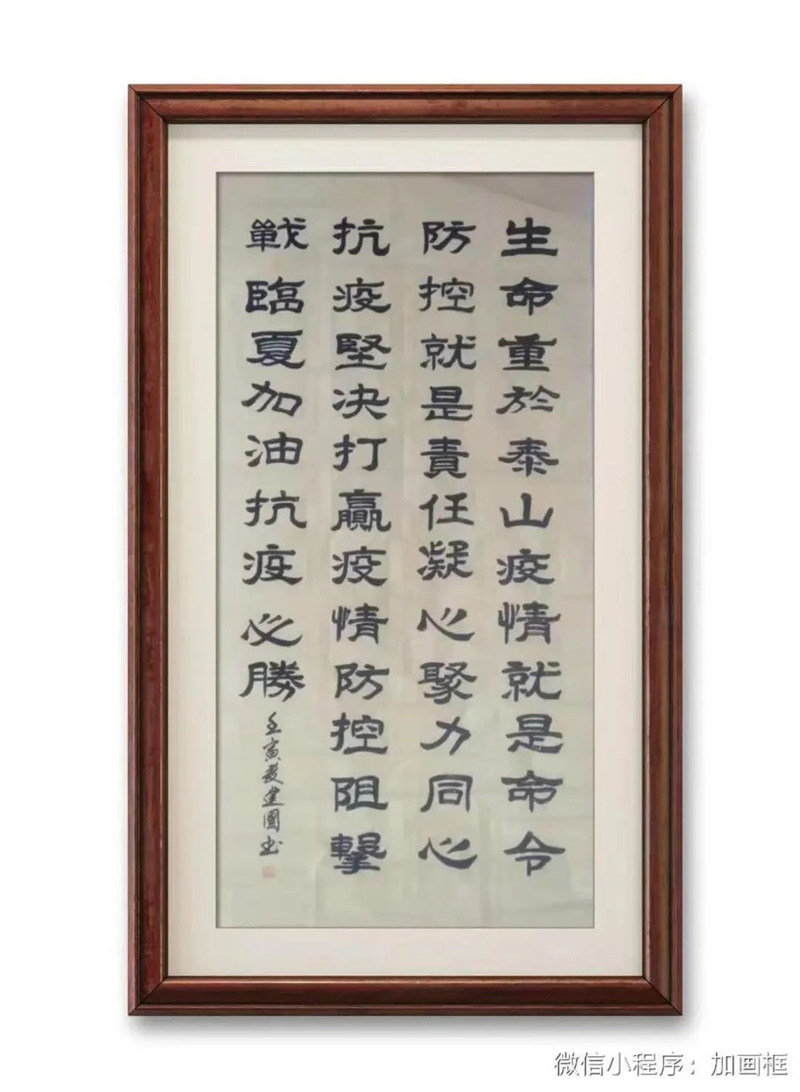 生命重於泰山疫情就是命令
防控就是責任凝心聚力同心
抗疫堅决打贏疫情防控阻擊
戰臨夏加油抗疫必勝
壬寅建國书
微信小程序：加画框